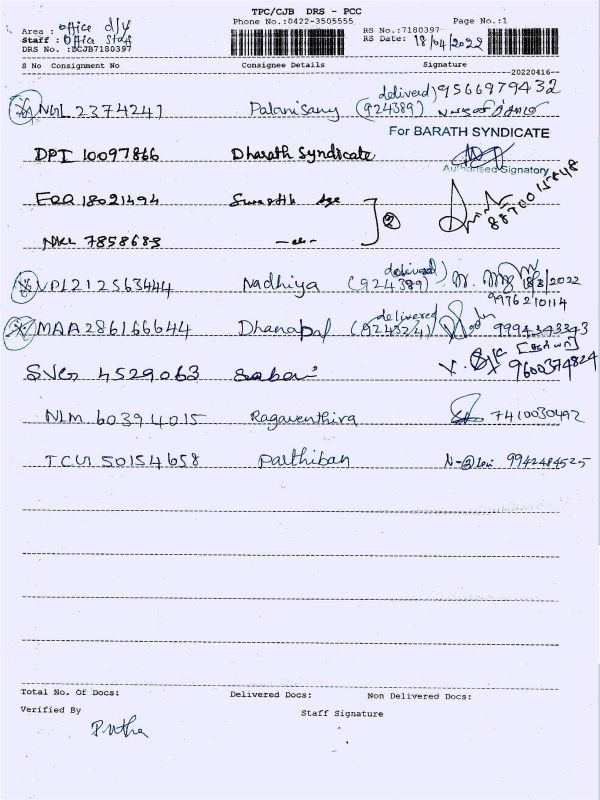 TPC/CJB DRS - PCC
Phone No.:0422-3505555
Page No.:1
Area : office d/y
Staff : Office Staf
DRS No. :BCJB7180397
RS No.:7180397
RS Date: 18/04/2022
S No Consignment No Consignee Details Signature
20220416
NGL 2374241 Palanisamy delivered (924389) 9566979432
For BARATH SYNDICATE
DPI 10097866 Dharath Syndicate
Authorised Signatory
ERR 18021494 Swastik Age 8870015848
NKL 7858683 -"- 2
VPL212563444 Nadhiya delivered (924389) 18/3/2022
9976210114
MAA 286166644 Dhanapal delivered (924324) 9994393343
SVG 4529063 Saban 9600374824
NLM 60394015 Ragaventhira 7410030492
TCU 50154658 Parthiban 9942484525
Total No. Of Docs: Delivered Docs: Non Delivered Docs:
Verified By Staff Signature